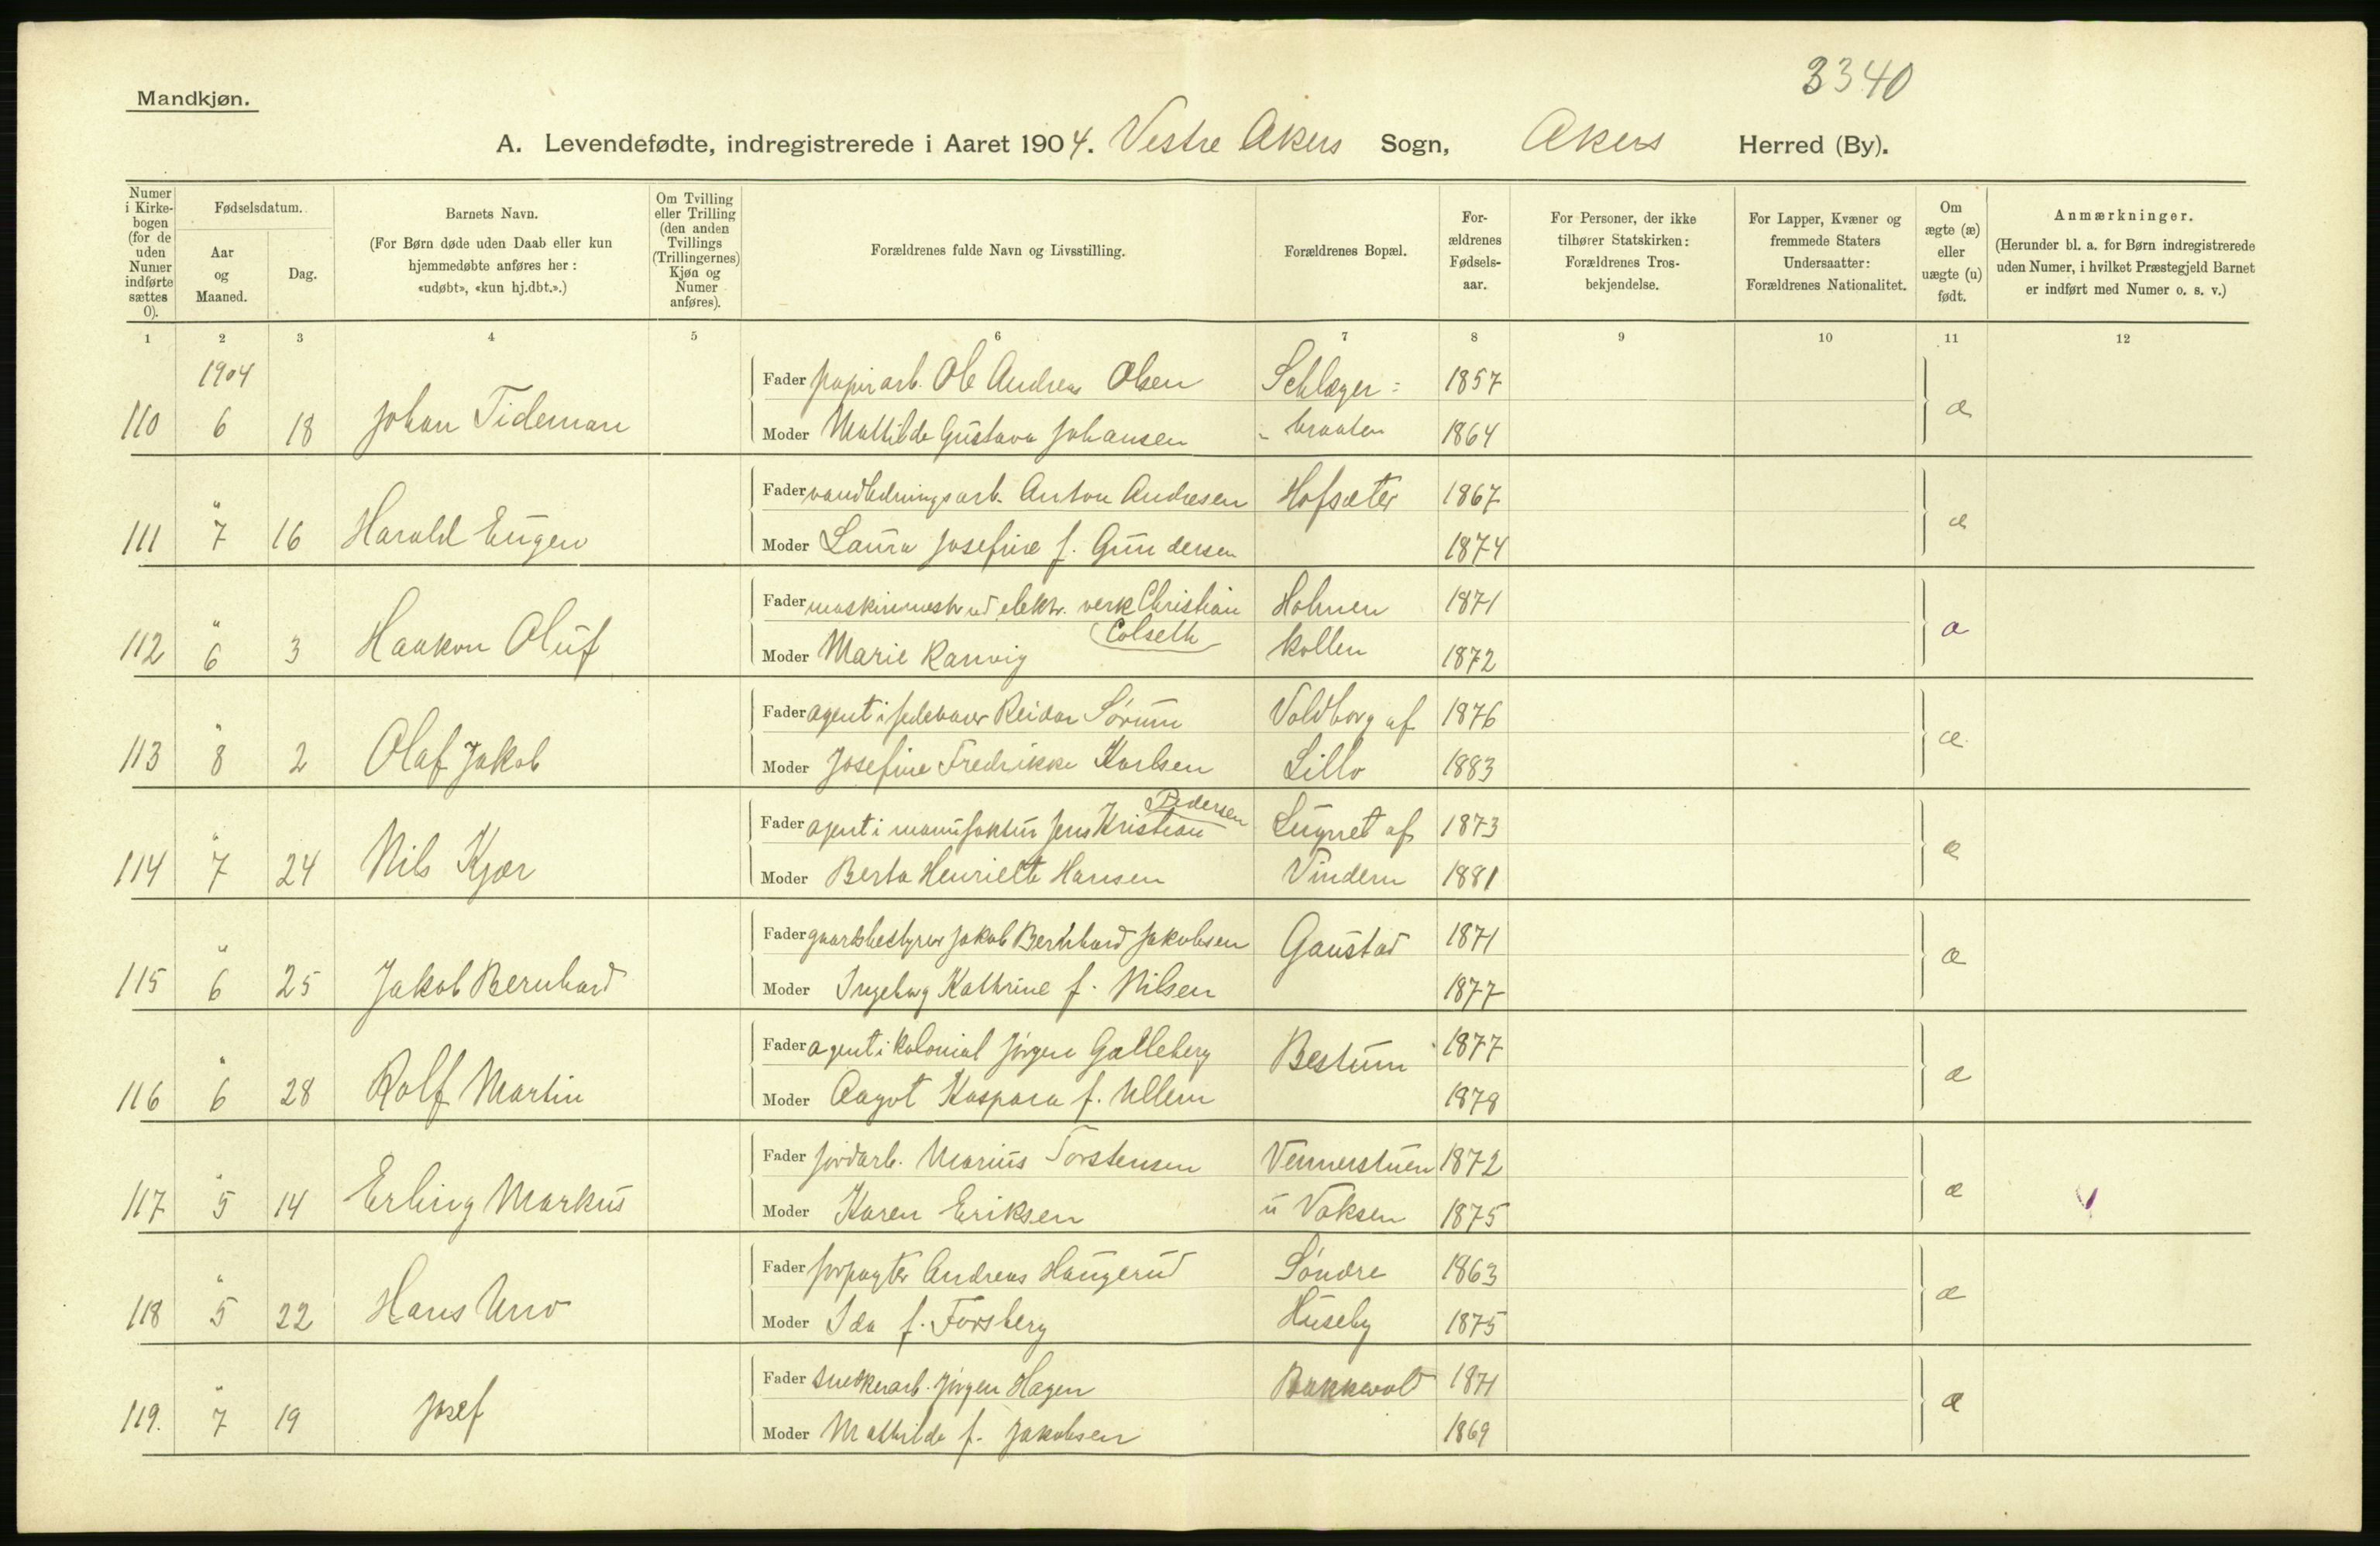 3340
Mandkjøn.
A. Levendefødte, indregistrerede i Aaret 1904. Vestre Akers Sogn, Akers Herred (By).
Numer i Kirkebogen (for de uden Numer indførte sættes 0).
Fødselsdatum.
Aar og Maaned.
Dag.
Barnets Navn.
(For Børn døde uden Daab eller kun hjemmedøbte anføres her: «udøbt», «kun hj.dbt.».)
Om Tvilling eller Trilling (den anden Tvillings (Trillingernes) Kjøn og Numer anføres).
Forældrenes fulde Navn og Livsstilling.
Forældrenes Bopæl.
Forældrenes Fødselsaar.
For Personer, der ikke tilhører Statskirken: Forældrenes Trosbekjendelse.
For Lapper, Kvæner og fremmede Staters Undersaatter: Forældrenes Nationalitet.
Om ægte (æ) eller uægte (u) født.
Anmærkninger.
(Herunder bl. a. for Børn indregistrerede uden Numer, i hvilket Præstegjeld Barnet er indført med Numer o. s. v.)
1 2 3 4 5 6 7 8 9 10 11 12
1904
Fader papirarb. Ole Andreas Olsen Schlæger= 1857
110 6 18 Johan Tideman æ
Moder Mathilde Gustava Johansen - braaten 1864
Fader vandledningsarb. Anton Andresen Hofsæter 1867
111 " 7 16 Harald Eugen æ
Moder Laura Josefine f. Gundersen 1874
Fader maskinmestr ved elektr. verk Christian Colseth Holmen 1871
112 " 6 3 Haakon Oluf æ
Moder Marie Ranvig kollen 1872
Fader agent i fedevarer Reidar Sørum Voldborg af 1876
113 " 8 2 Olaf Jakob æ
Moder Josefine Fredrikke Karlsen Lillo 1883
Fader agent i manufaktur Jens Kristian Pedersen Lugnet af 1873
114 " 7 24 Nils Kjær æ
Moder Berta Henriette Hansen Vindern 1881
Fader gaardsbestyrer Jakob Bernhard Jakobsen Gaustad 1871
115 " 6 25 Jakob Bernhard æ
Moder Ingeborg Kathrine f. Nilsen 1877
Fader agent i kolonial Jørgen Galleberg Bestum 1877
116 " 6 28 Rolf Martin æ
Moder Aagot Kaspara f. Ullern 1878
Fader jordarb. Marius Torstensen Vennerstuen 1872
117 " 5 14 Erling Markus æ
Moder Karen Eriksen u Voksen 1875
Fader forpagter Andreas Haugerud Søndre 1863
118 " 5 22 Hans Uno æ
Moder Ida f. Forsberg Huseby 1875
Fader snedkerarb. Jørgen Hagen Bakkevold 1871
119. " 7 19 Josef æ
Moder Mathilde f. Jakobsen 1869